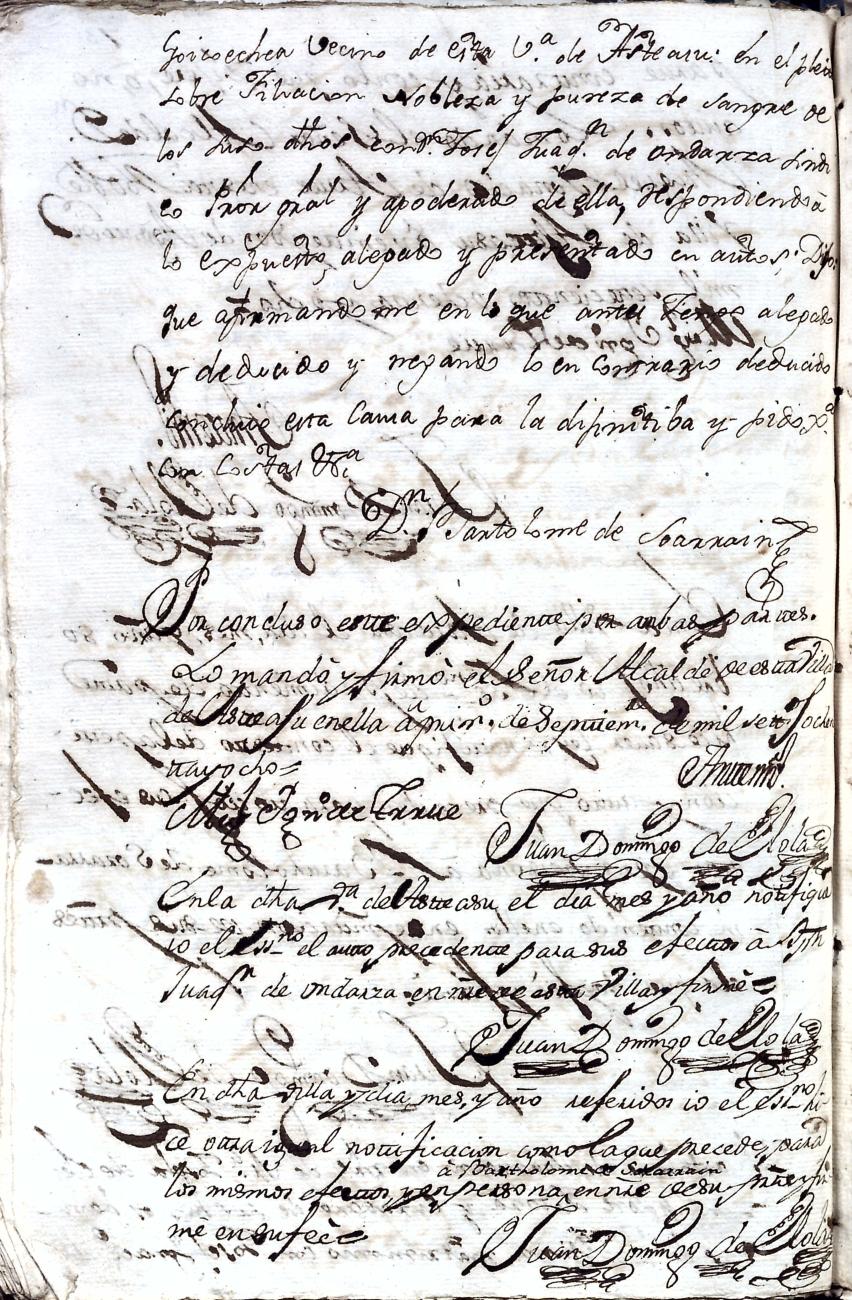 Goicoechea Vecino de esta V.ª de Asteasu: en el pleito
sobre Filiacion Nobleza y pureza de sangre de
los suso dhos con Dn. Josef Juaqn. de Undarza sindi
co Pror gral y apoderado de ella, respondiendo à
lo expuesto, alegado y presentado en autos; Digo
que afirmando me en lo que antes tengo alegado
y deducido y negando lo en contrario deducido
concluio esta Causa para la difinitiba y pido
con Costas &ª
Dn. Bartolome de Sarrain
Por concluso este expediente por ambas partes.
Lo mandò y firmò el Señor Alcalde de esta Villa
de Asteasu en ella à de Septiem.e de mil sett.s ochen
tta y ocho=
Anttemi.
Igno. de Irrue
Juan Domingo de Elola
En la dha Vª de Asteasu el dia mes y año notifiqué
io el Essno. el autto precedente para sus efectos à Jph
Juaqn. de Undarza en nre de esta Villa y firmè=
Juan Domingo de Elola
En dha villa y dia, mes, y año referidos io el Essno. hi-
ce otra igual nottificacion como la que precede, para
à Bartholome de Sararrain
los mismos efectos, y en persona, en nre de su pte y fir
me en su feè=
Juan Domingo de Elola